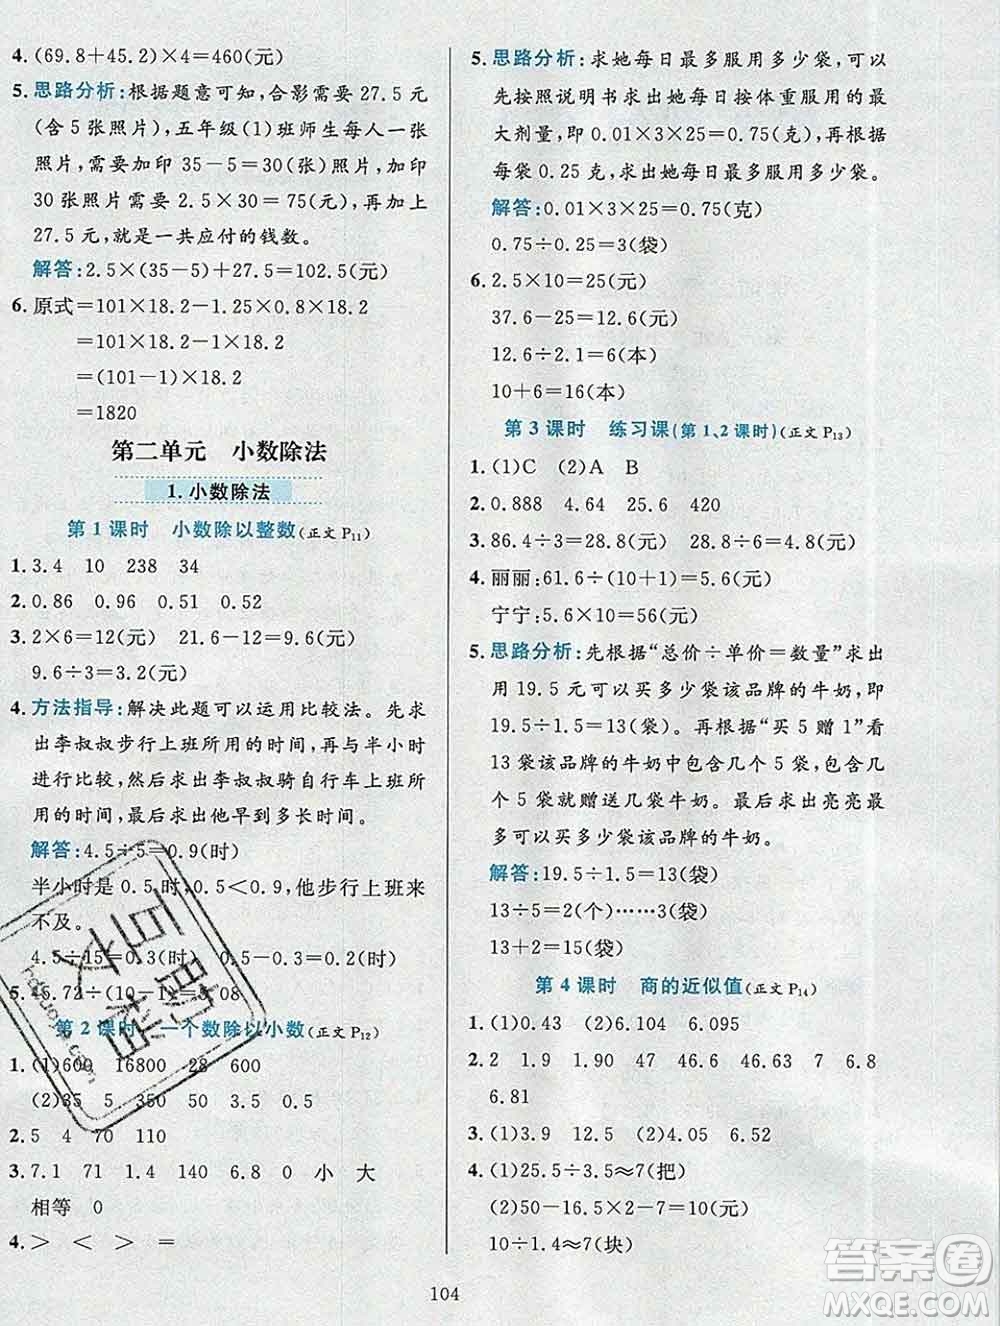 4. (69.8+45.2)×4=460(元)
5. 思路分析:根据题意可知,合影需要 27.5 元
(含 5 张照片),五年级(1)班师生每人一张
照片,需要加印 35-5=30(张)照片,加印
30 张照片需要 2.5×30=75(元),再加上
27.5 元,就是一共应付的钱数。
解答:2.5×(35-5)+27.5=102.5(元)
6. 原式=101×18.2-1.25×0.8×18.2
=101×18.2-1×18.2
=(101-1)×18.2
=1820
第二单元 小数除法
1.小数除法
第 1 课时 小数除以整数(正文 P11)
1. 3.4 10 238 34
2. 0.86 0.96 0.51 0.52
3. 2×6=12(元) 21.6-12=9.6(元)
9.6÷3=3.2(元)
4. 方法指导:解决此题可以运用比较法。先求
出李叔叔步行上班所用的时间,再与半小时
进行比较,然后求出李叔叔骑自行车上班所
用的时间,最后求出他早到多长时间。
解答:4.5÷5=0.9(时)
半小时是 0.5 时,0.5<0.9,他步行上班来
不及。
4.5÷15=0.3(时) 0.5-0.3=0.2(时)
5. 45.72÷(10-1)=5.08
第 2 课时 一个数除以小数(正文 P12)
1. (1)600 16800 28 600
(2)35 5 350 50 3.5 0.5
2. 5 4 70 110
3. 7.1 71 1.4 140 6.8 0 小 大
相等 0
4. > < > =
5. 思路分析:求她每日最多服用多少袋,可以
先按照说明书求出她每日按体重服用的最
大剂量,即 0.01×3×25=0.75(克),再根据
每袋 0.25 克,求出她每日最多服用多少袋。
解答:0.01×3×25=0.75(克)
0.75÷0.25=3(袋)
6. 2.5×10=25(元)
37.6-25=12.6(元)
12.6÷2.1=6(本)
10+6=16(本)
第 3 课时 练习课(第 1、2 课时)(正文 P13)
1. (1)C (2)A B
2. 0.888 4.64 25.6 420
3. 86.4÷3=28.8(元) 28.8÷6=4.8(元)
4. 丽丽:61.6÷(10+1)=5.6(元)
宁宁:5.6×10=56(元)
5. 思路分析:先根据“总价÷单价=数量”求出
用 19.5 元可以买多少袋该品牌的牛奶,即
19.5÷1.5=13(袋)。再根据“买 5 赠 1”看
13 袋该品牌的牛奶中包含几个 5 袋,有几
个 5 袋就赠送几袋牛奶。最后求出亮亮最
多可以买多少袋该品牌的牛奶。
解答:19.5÷1.5=13(袋)
13÷5=2(个)……3(袋)
13+2=15(袋)
第 4 课时 商的近似值(正文 P14)
1. (1)0.43 (2)6.104 6.095
2. 2 1.9 1.90 47 46.6 46.63 7 6.8
6.81
3. (1)3.9 12.5 (2)4.06 6.52
4. (1)25.5÷3.5≈7(把)
(2)50-16.5×2-7=10(元)
10÷1.4≈7(块)
104
答案圈
MXQE.COM